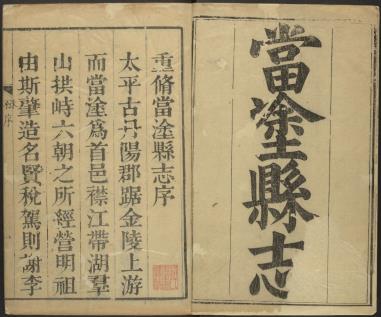 當塗縣志
重脩當塗縣志序
太平古丹陽郡踞金陵上游
而當塗爲首邑襟江帶湖羣
山拱峙六朝之所經營明祖
由斯肇造名賢稅駕則謝李